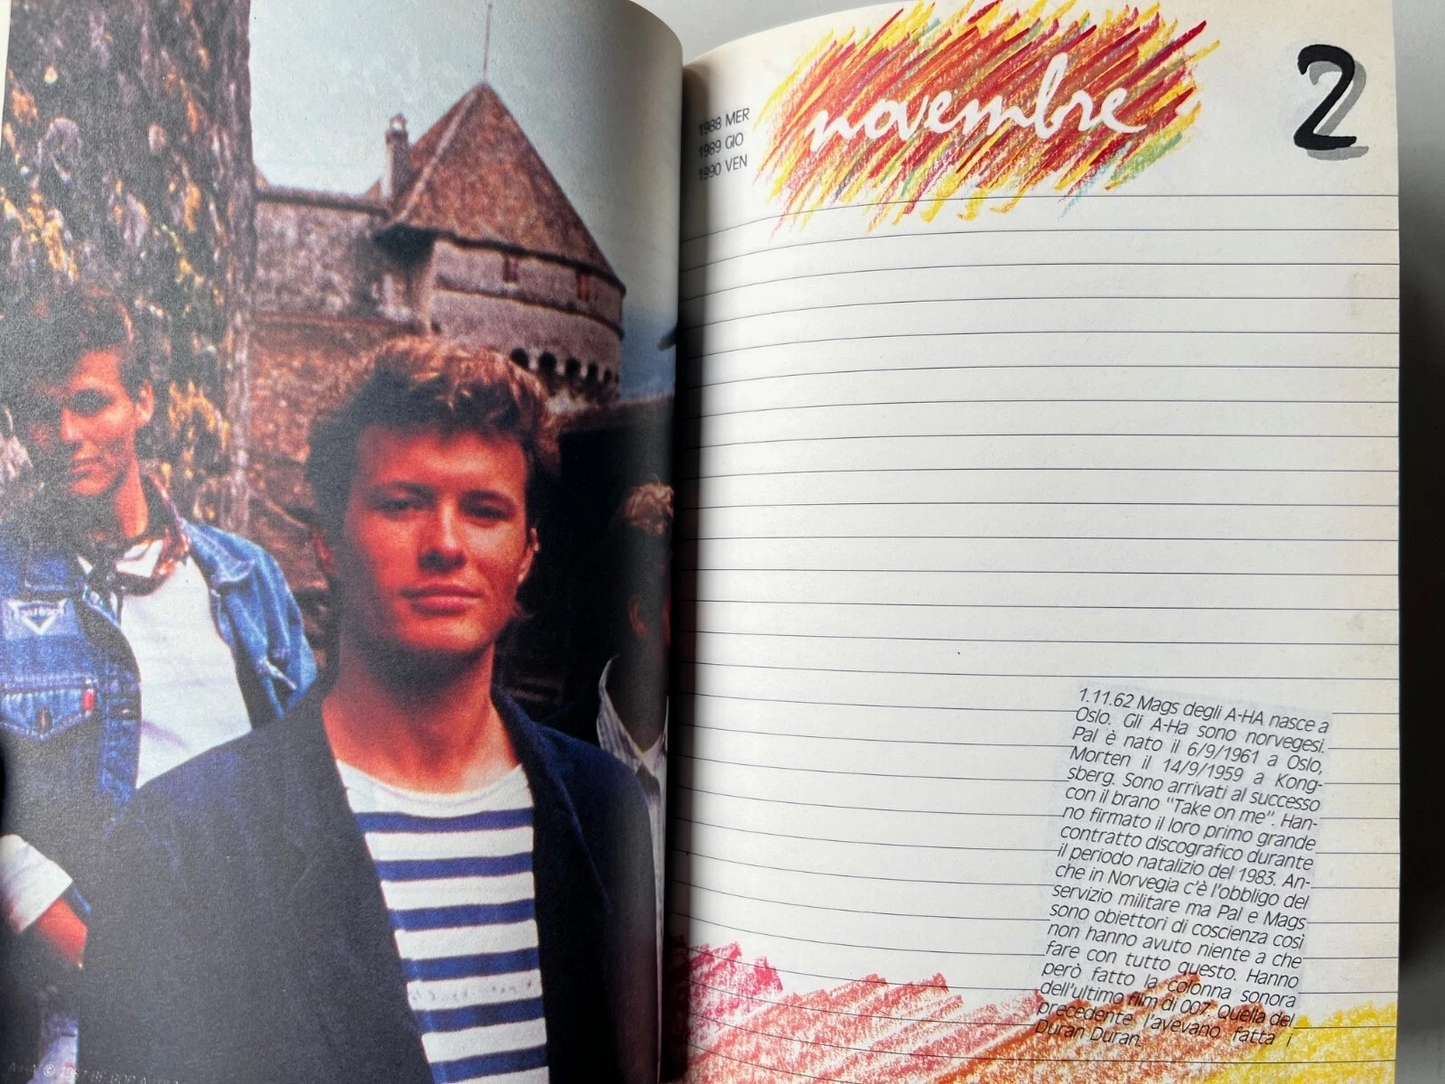 1988 MER
1989 GIO
1990 VEN
novembre
2
1.11.62 Mags degli A-HA nasce a
Oslo. Gli A-Ha sono norvegesi.
Pal è nato il 6/9/1961 a Oslo,
Morten il 14/9/1959 a Kong-
sberg. Sono arrivati al successo
con il brano "Take on me". Han-
no firmato il loro primo grande
contratto discografico durante
il periodo natalizio del 1983. An-
che in Norvegia c'è l'obbligo del
servizio militare ma Pal e Mags
sono obiettori di coscienza così
non hanno avuto niente a che
fare con tutto questo. Hanno
però fatto la colonna sonora
dell'ultimo film di 007. Quella del
precedente l'avevano fatta i
Duran Duran.